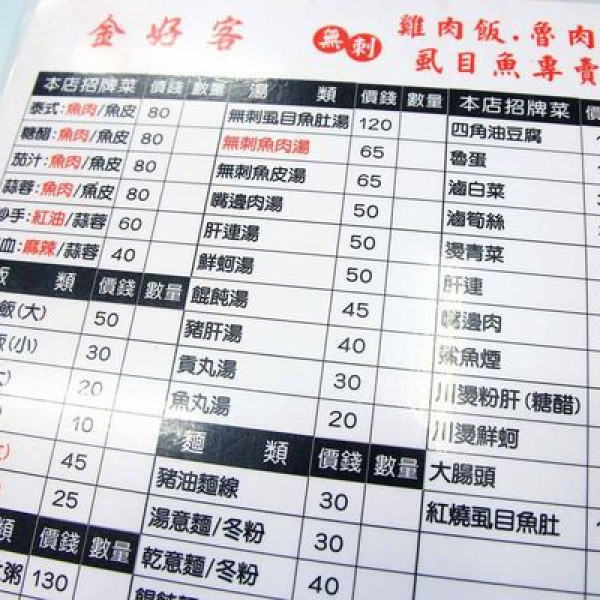 金好客
無刺
雞肉飯.魯肉
虱目魚專賣
本店招牌菜 價錢 數量
泰式:魚肉/魚皮 80
糖醋:魚肉/魚皮 80
茄汁:魚肉/魚皮 80
蒜蓉:魚肉/魚皮 80
手:紅油/蒜蓉 60
血:麻辣/蒜蓉 40
類 價錢 數量
飯(大) 50
(小) 30
20
10
45
25
類 價錢 數量
粥 130
湯類 價錢 數量
無刺虱目魚肚湯 120
無刺魚肉湯 65
無刺魚皮湯 65
嘴邊肉湯 50
肝連湯 50
鮮蚵湯 50
餛飩湯 45
豬肝湯 40
貢丸湯 30
魚丸湯 20
麵類 價錢 數量
豬油麵線 30
湯意麵/冬粉 30
乾意麵/冬粉 40
本店招牌菜
四角油豆腐
魯蛋
滷白菜
滷筍絲
燙青菜
肝連
嘴邊肉
鯊魚煙
川燙粉肝(糖醋)
川燙鮮蚵
大腸頭
紅燒虱目魚肚